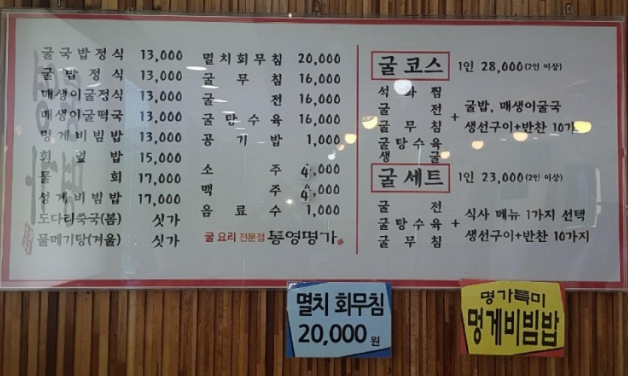 굴국밥정식 13,000
굴밥정식 13,000
매생이굴정식 13,000
매생이굴떡국 13,000
멍게비빔밥 13,000
회덮밥 15,000
물회 17,000
성게비빔밥 17,000
도다리쑥국(봄) 싯가
물메기탕(겨울) 싯가
멸치회무침 20,000
굴무침 16,000
굴전 16,000
굴탕수육 16,000
공기밥 1,000
소주 4,000
맥주 4,000
음료수 1,000
굴 요리 전문점 통영명가
굴 코스 1인 28,000(2인 이상)
석화찜
굴전
굴무침
굴탕수육
생굴
+ 굴밥, 매생이굴국
생선구이+반찬 10가
굴 세트 1인 23,000(2인 이상)
굴전
굴탕수육
굴무침
+ 식사 메뉴 1가지 선택
생선구이+반찬 10가지
멸치 회무침
20,000원
명가특미
멍게비빔밥